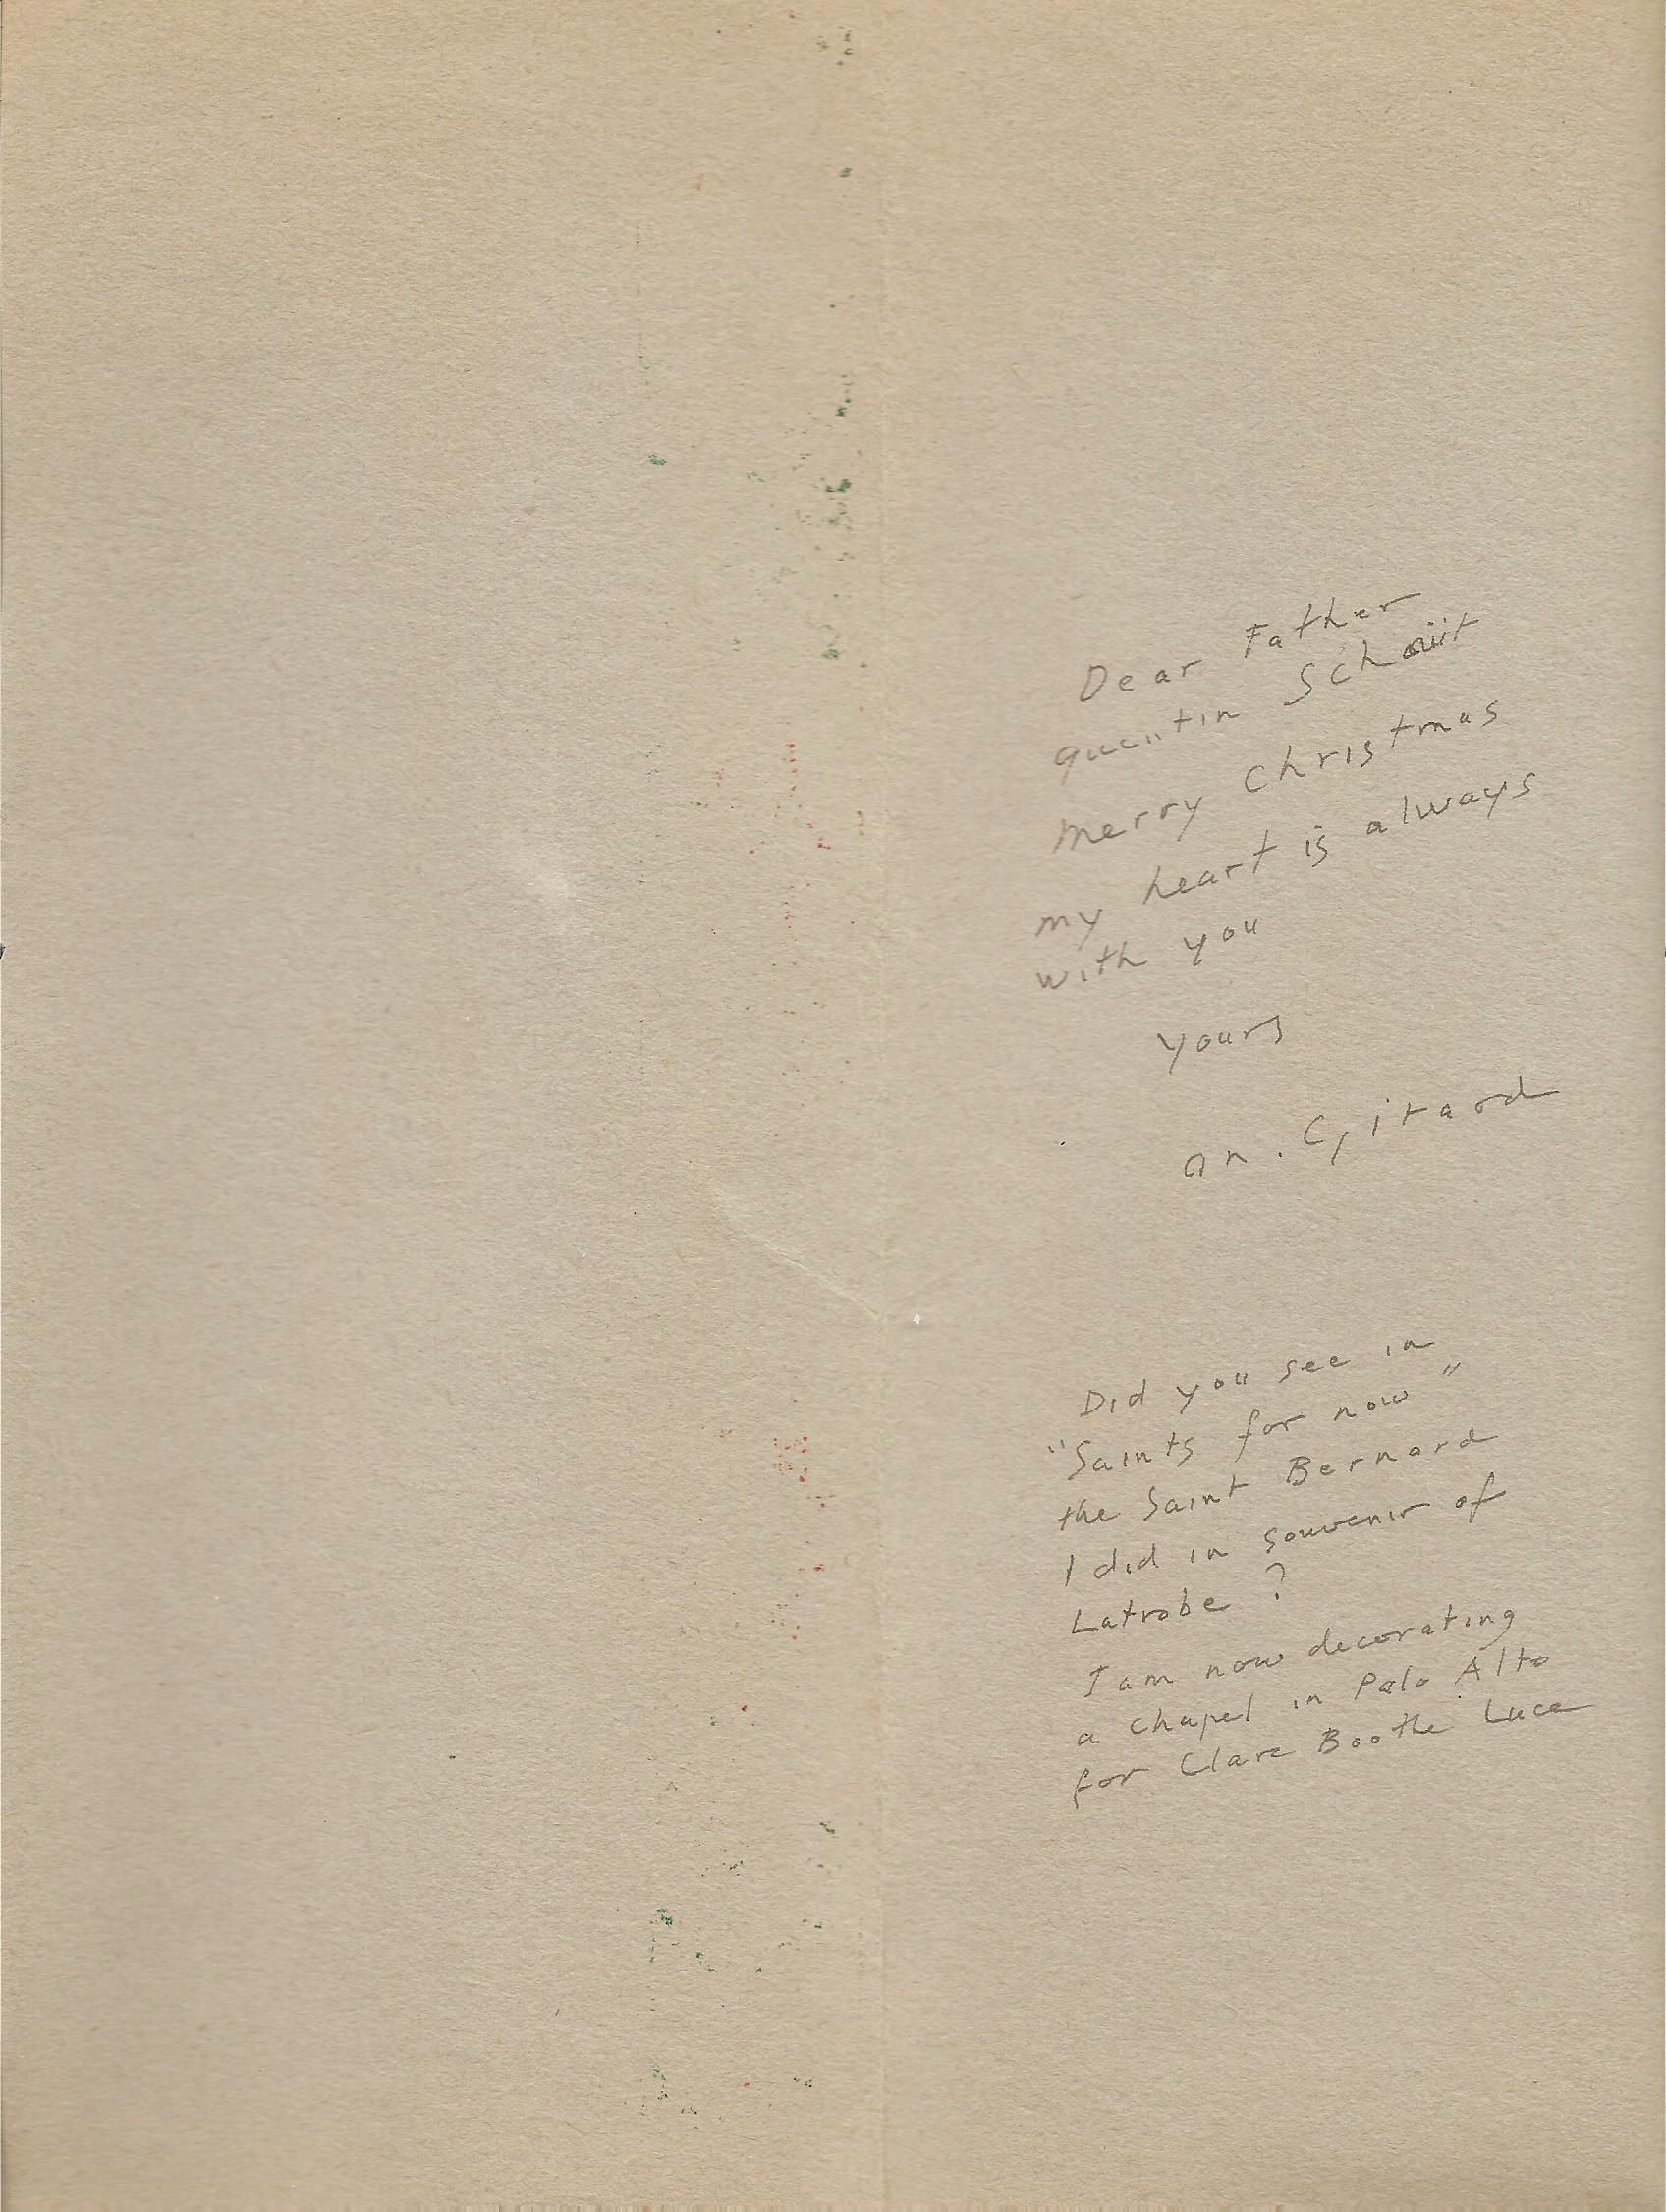 Dear Father
Quentin Schaüt
Merry Christmas
my heart is always
with you
Yours
an. Girard
Did you see in
"Saints for now"
the Saint Bernard
I did in souvenir of
Latrobe ?
I am now decorating
a chapel in Palo Alto
for Clare Boothe Luce